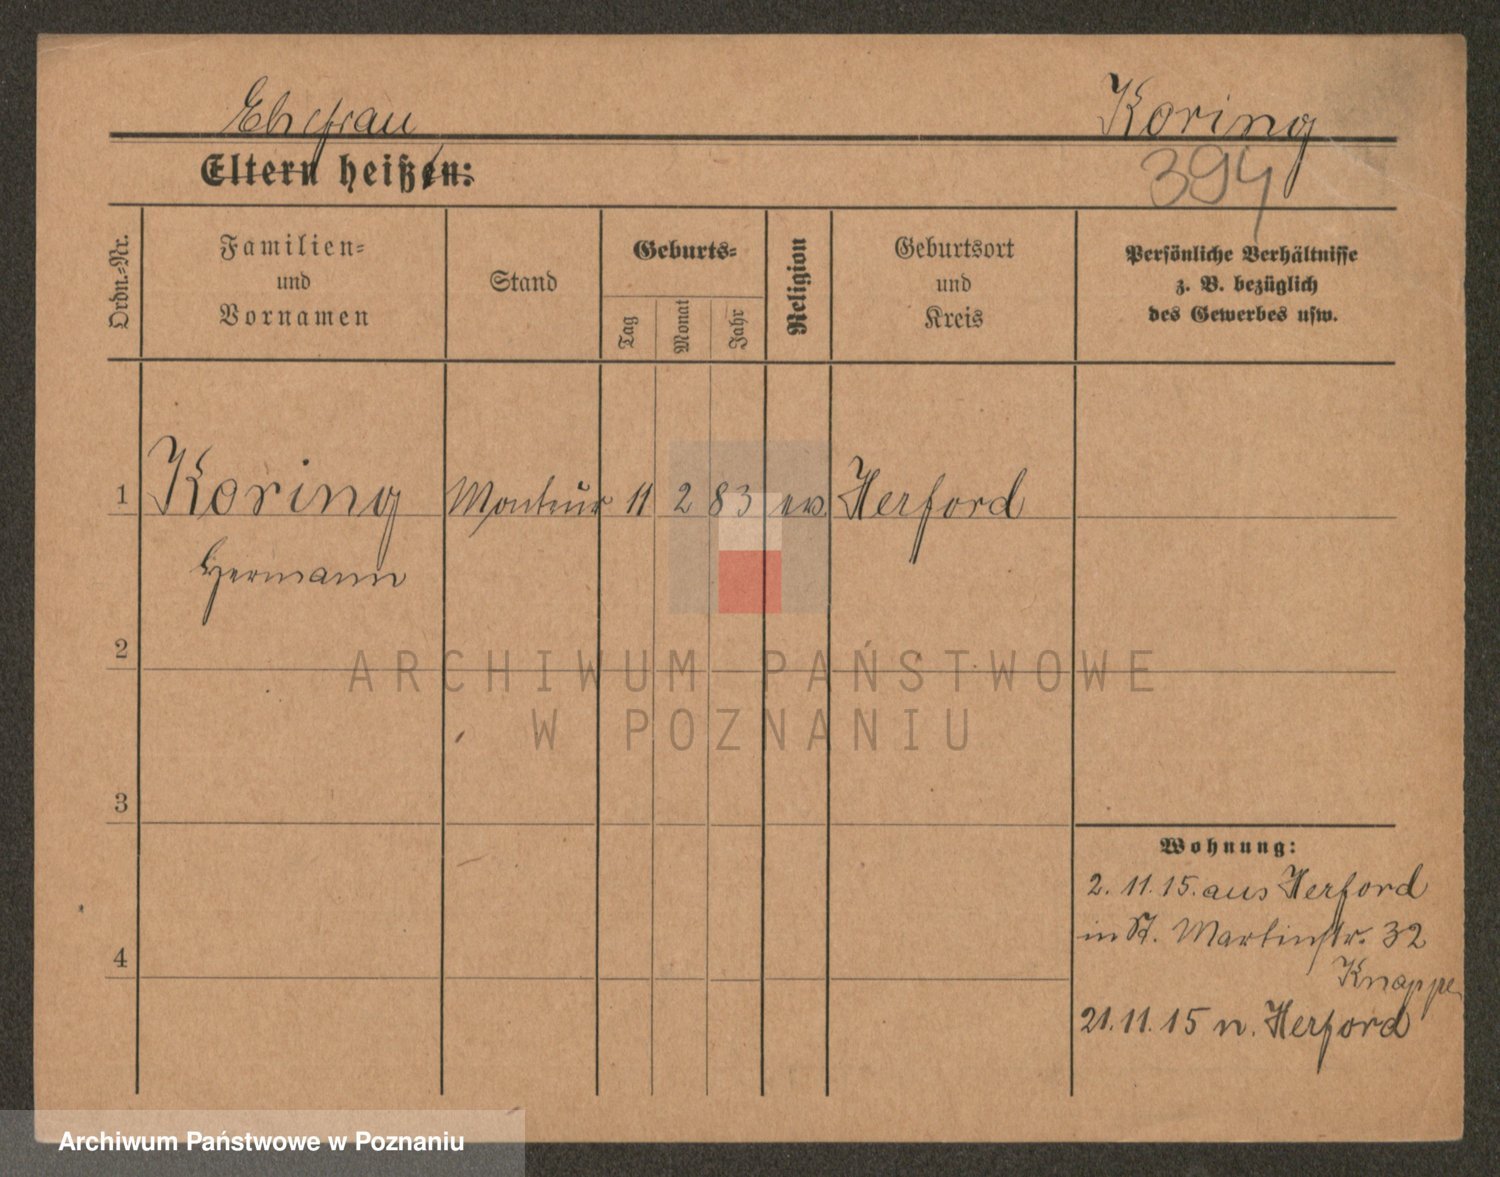 Ehefrau
Koring
Eltern heißen:
394
Ordn.-Nr.
Familien-
und
Vornamen
Stand
Geburts-
Tag
Monat
Jahr
Religion
Geburtsort
und
Kreis
Persönliche Verhältnisse
z. B. bezüglich
des Gewerbes usw.
1 Koring Monteur 11 2 83 ev Herford
Hermann
2
3
4
Wohnung:
2. 11. 15. aus Herford
in St. Martinstr. 32
Knappe
21. 11. 15 n. Herford
ARCHIWUM PAŃSTWOWE
W POZNANIU
Archiwum Państwowe w Poznaniu